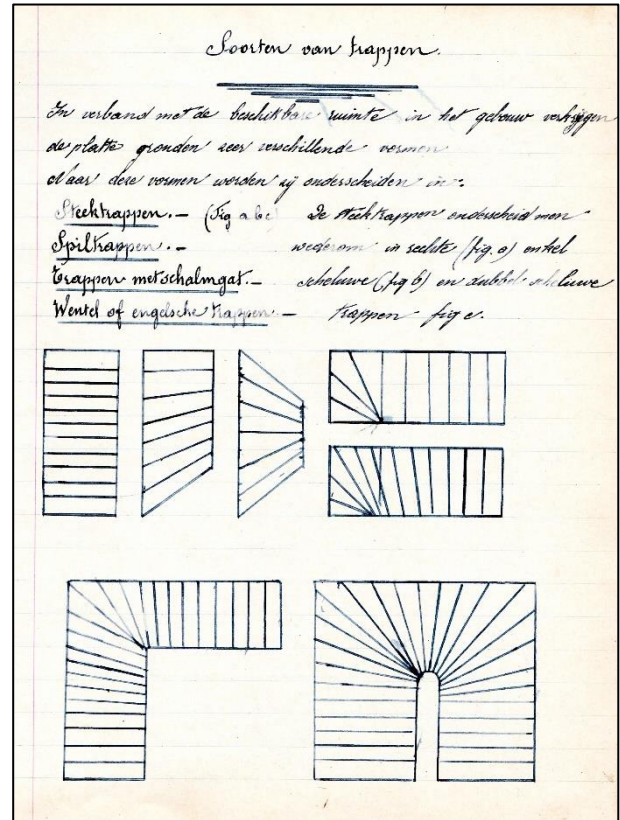 Soorten van trappen.
In verband met de beschikbare ruimte in het gebouw verkrijgen
de platte gronden zeer verschillende vormen
Naar deze vormen worden zij onderscheiden in :
Steektrappen. — (Fig a b c) De steektrappen onderscheid men
Spiltrappen. — wederom in rechte (fig. a) enkel
Trappen met schalmgat. — scheluwe (fig b) en dubbel scheluwe
Wentel of engelsche trappen. — trappen fig c.